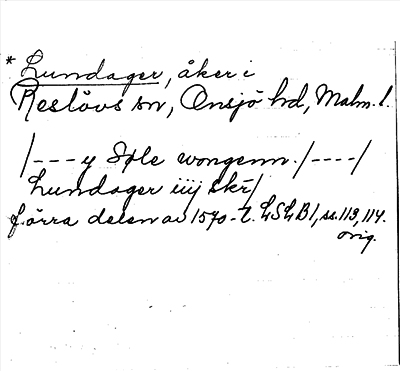 * Lundager, åker i
Reslövs sn, Onsjö hd, Malm. l.
/---y Søle wongenn./----/
Lundager iiij skr/
förra delen av 1570-t. LSLB1, ss. 113, 114.
orig.